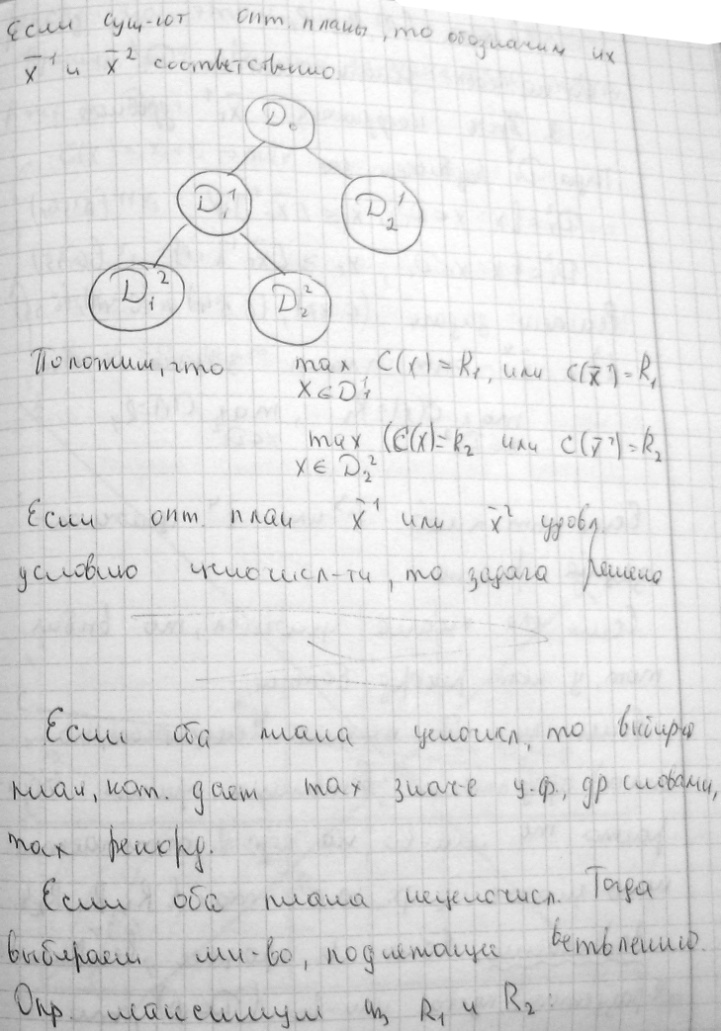 Если сущ-ют опт. планы, то обозначим их
x̄¹ и x̄² соответственно
D₀
D₁¹ D₂¹
D₁² D₂²
Положим, что max C(x) = R₁, или C(x̄¹) = R₁
x∈D₁¹
max (C(x) = R₂ или C(x̄²) = R₂
x∈D₂²
Если опт. план x̄¹ или x̄² удовл
условию целочисл-ти, то задача решена
Если оба плана целочисл, то выбир
план, кот. дает max знач-е ц.ф., др словами,
max рекорд.
Если оба плана нецелочисл. Тогда
выбираем мн-во, подлежащее ветвлению.
Опр. максимум из R₁ и R₂: